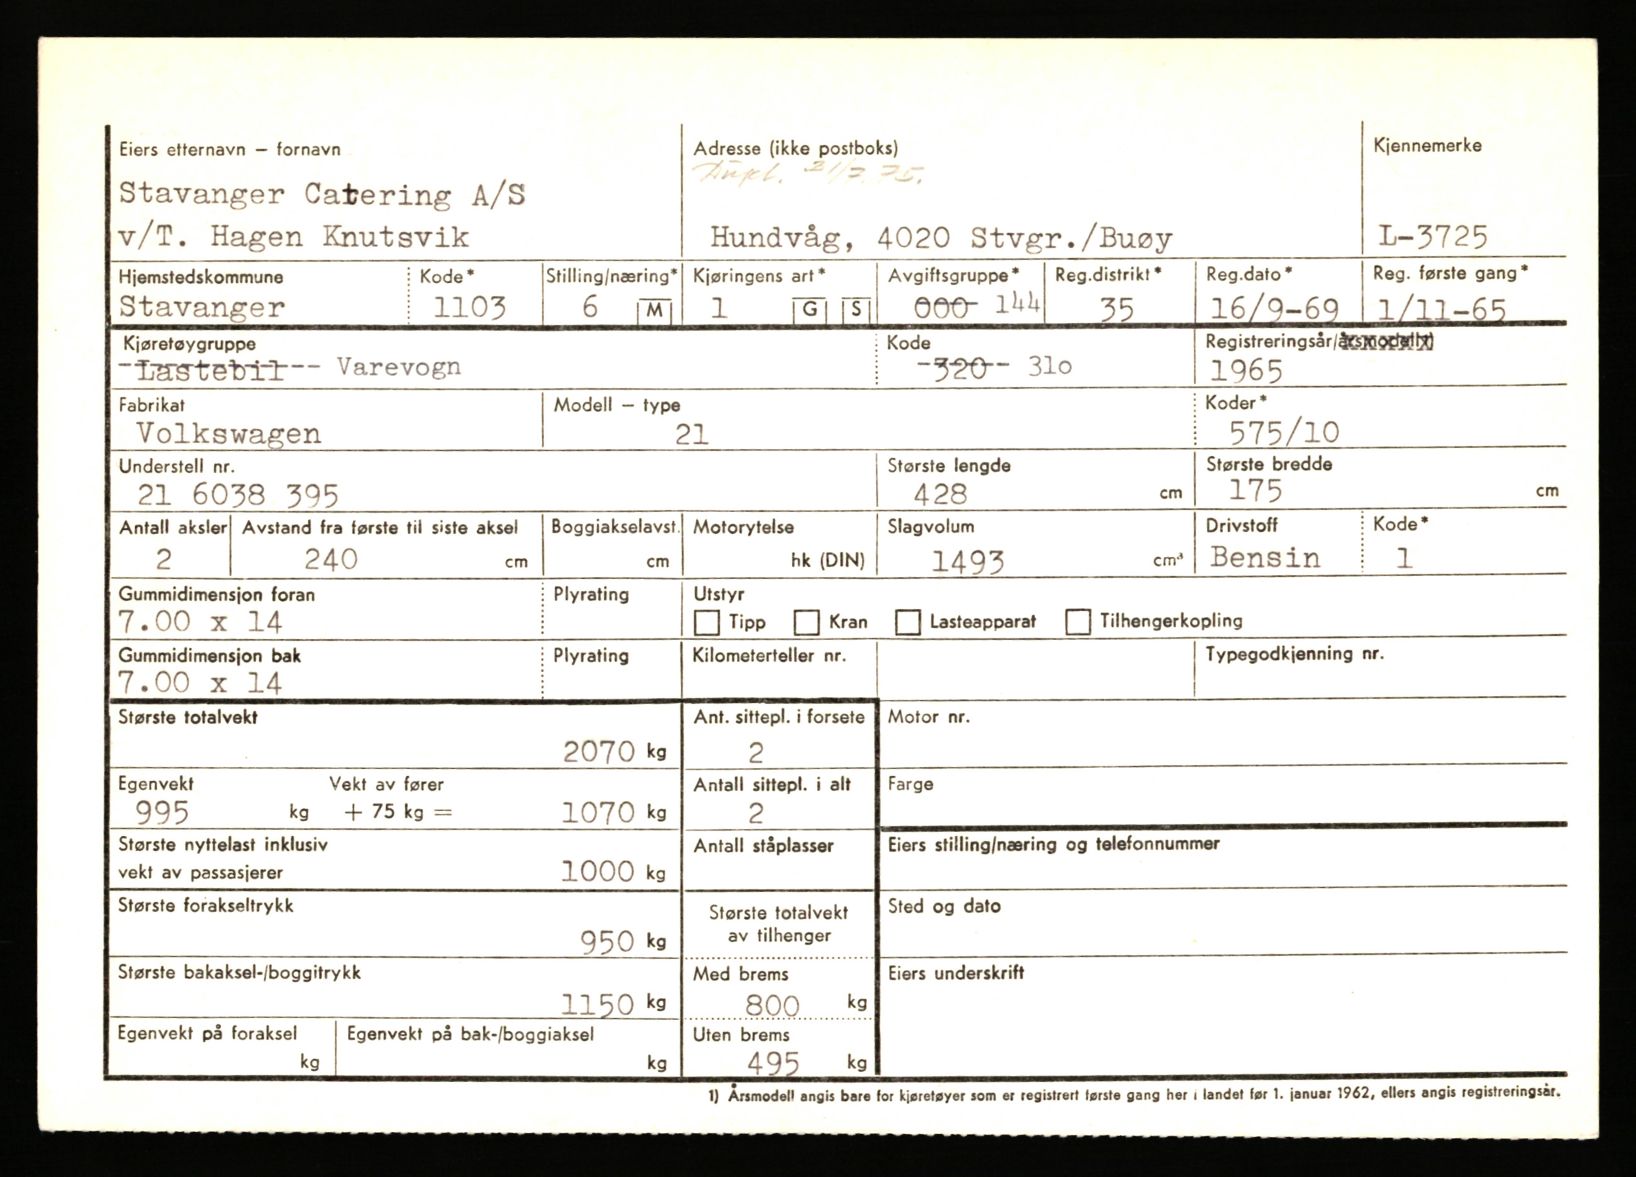 Eiers etternavn – fornavn
Stavanger Catering A/S
v/T. Hagen Knutsvik
Adresse (ikke postboks)
Hundvåg, 4020 Stvgr./Buøy
Kjennemerke
L-3725
Hjemstedskommune
Stavanger
Kode*
1103
Stilling/næring*
6 M
Kjøringens art*
1 G S
Avgiftsgruppe*
000 144
Reg.distrikt*
35
Reg.dato*
16/9-69
Reg. første gang*
1/11-65
Kjøretøygruppe
Lastebil-- Varevogn
Kode
-320- 31o
Registreringsår/årsmodell1)
1965
Fabrikat
Volkswagen
Modell – type
21
Koder*
575/10
Understell nr.
21 6038 395
Største lengde
428 cm
Største bredde
175 cm
Antall aksler
2
Avstand fra første til siste aksel
240 cm
Boggiakselavst.
cm
Motorytelse
hk (DIN)
Slagvolum
1493 cm³
Drivstoff
Bensin
Kode*
1
Gummidimensjon foran
7.00 x 14
Plyrating
Utstyr
Tipp Kran Lasteapparat Tilhengerkopling
Gummidimensjon bak
7.00 x 14
Plyrating
Kilometerteller nr.
Typegodkjenning nr.
Største totalvekt
2070 kg
Ant. sittepl. i forsete
2
Motor nr.
Egenvekt Vekt av fører
995 kg + 75 kg = 1070 kg
Antall sittepl. i alt
2
Farge
Største nyttelast inklusiv
vekt av passasjerer 1000 kg
Antall ståplasser
Eiers stilling/næring og telefonnummer
Største forakseltrykk
950 kg
Største totalvekt
av tilhenger
Sted og dato
Største bakaksel-/boggitrykk
1150 kg
Med brems
800 kg
Eiers underskrift
Egenvekt på foraksel
kg
Egenvekt på bak-/boggiaksel
kg
Uten brems
495 kg
1) Årsmodell angis bare for kjøretøyer som er registrert første gang her i landet før 1. januar 1962, ellers angis registreringsår.